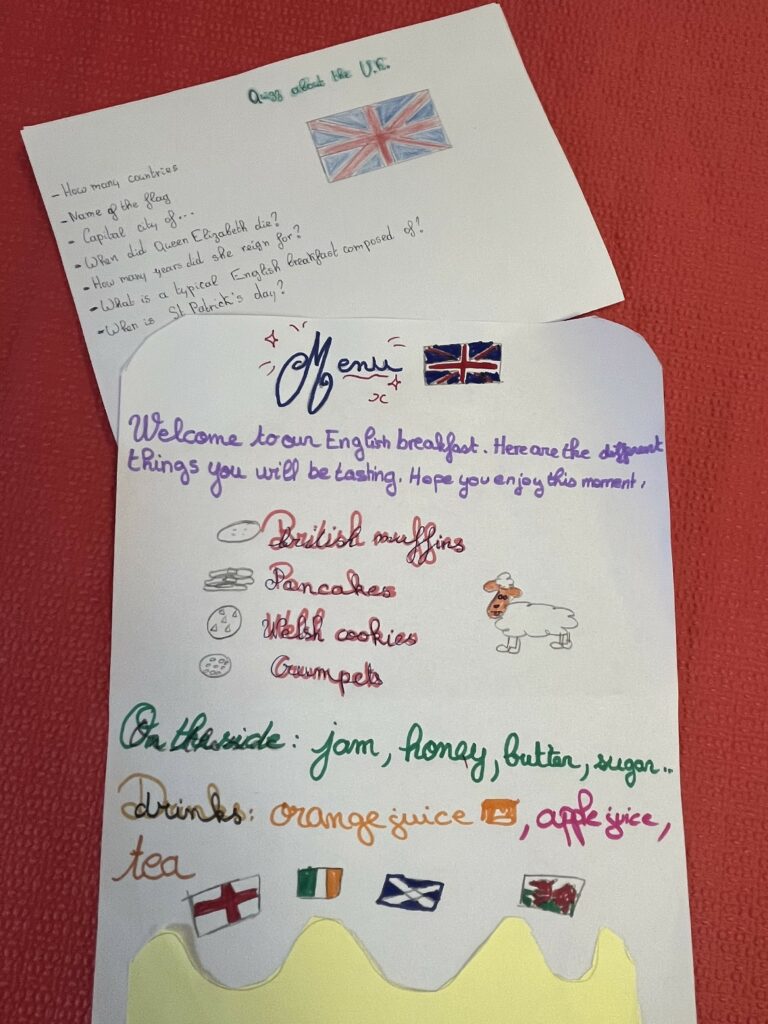 Quizz about the U.K.
- How many countries
- Name of the flag
- Capital city of...
- When did Queen Elizabeth die?
- How many years did she reign for?
- What is a typical English breakfast composed of?
- When is St Patrick's day?
Menu
Welcome to our English breakfast. Here are the different
things you will be tasting. Hope you enjoy this moment.
British muffins
Pancakes
Welsh cookies
Crumpets
On the side: jam, honey, butter, sugar..
Drinks: orange juice, apple juice,
tea